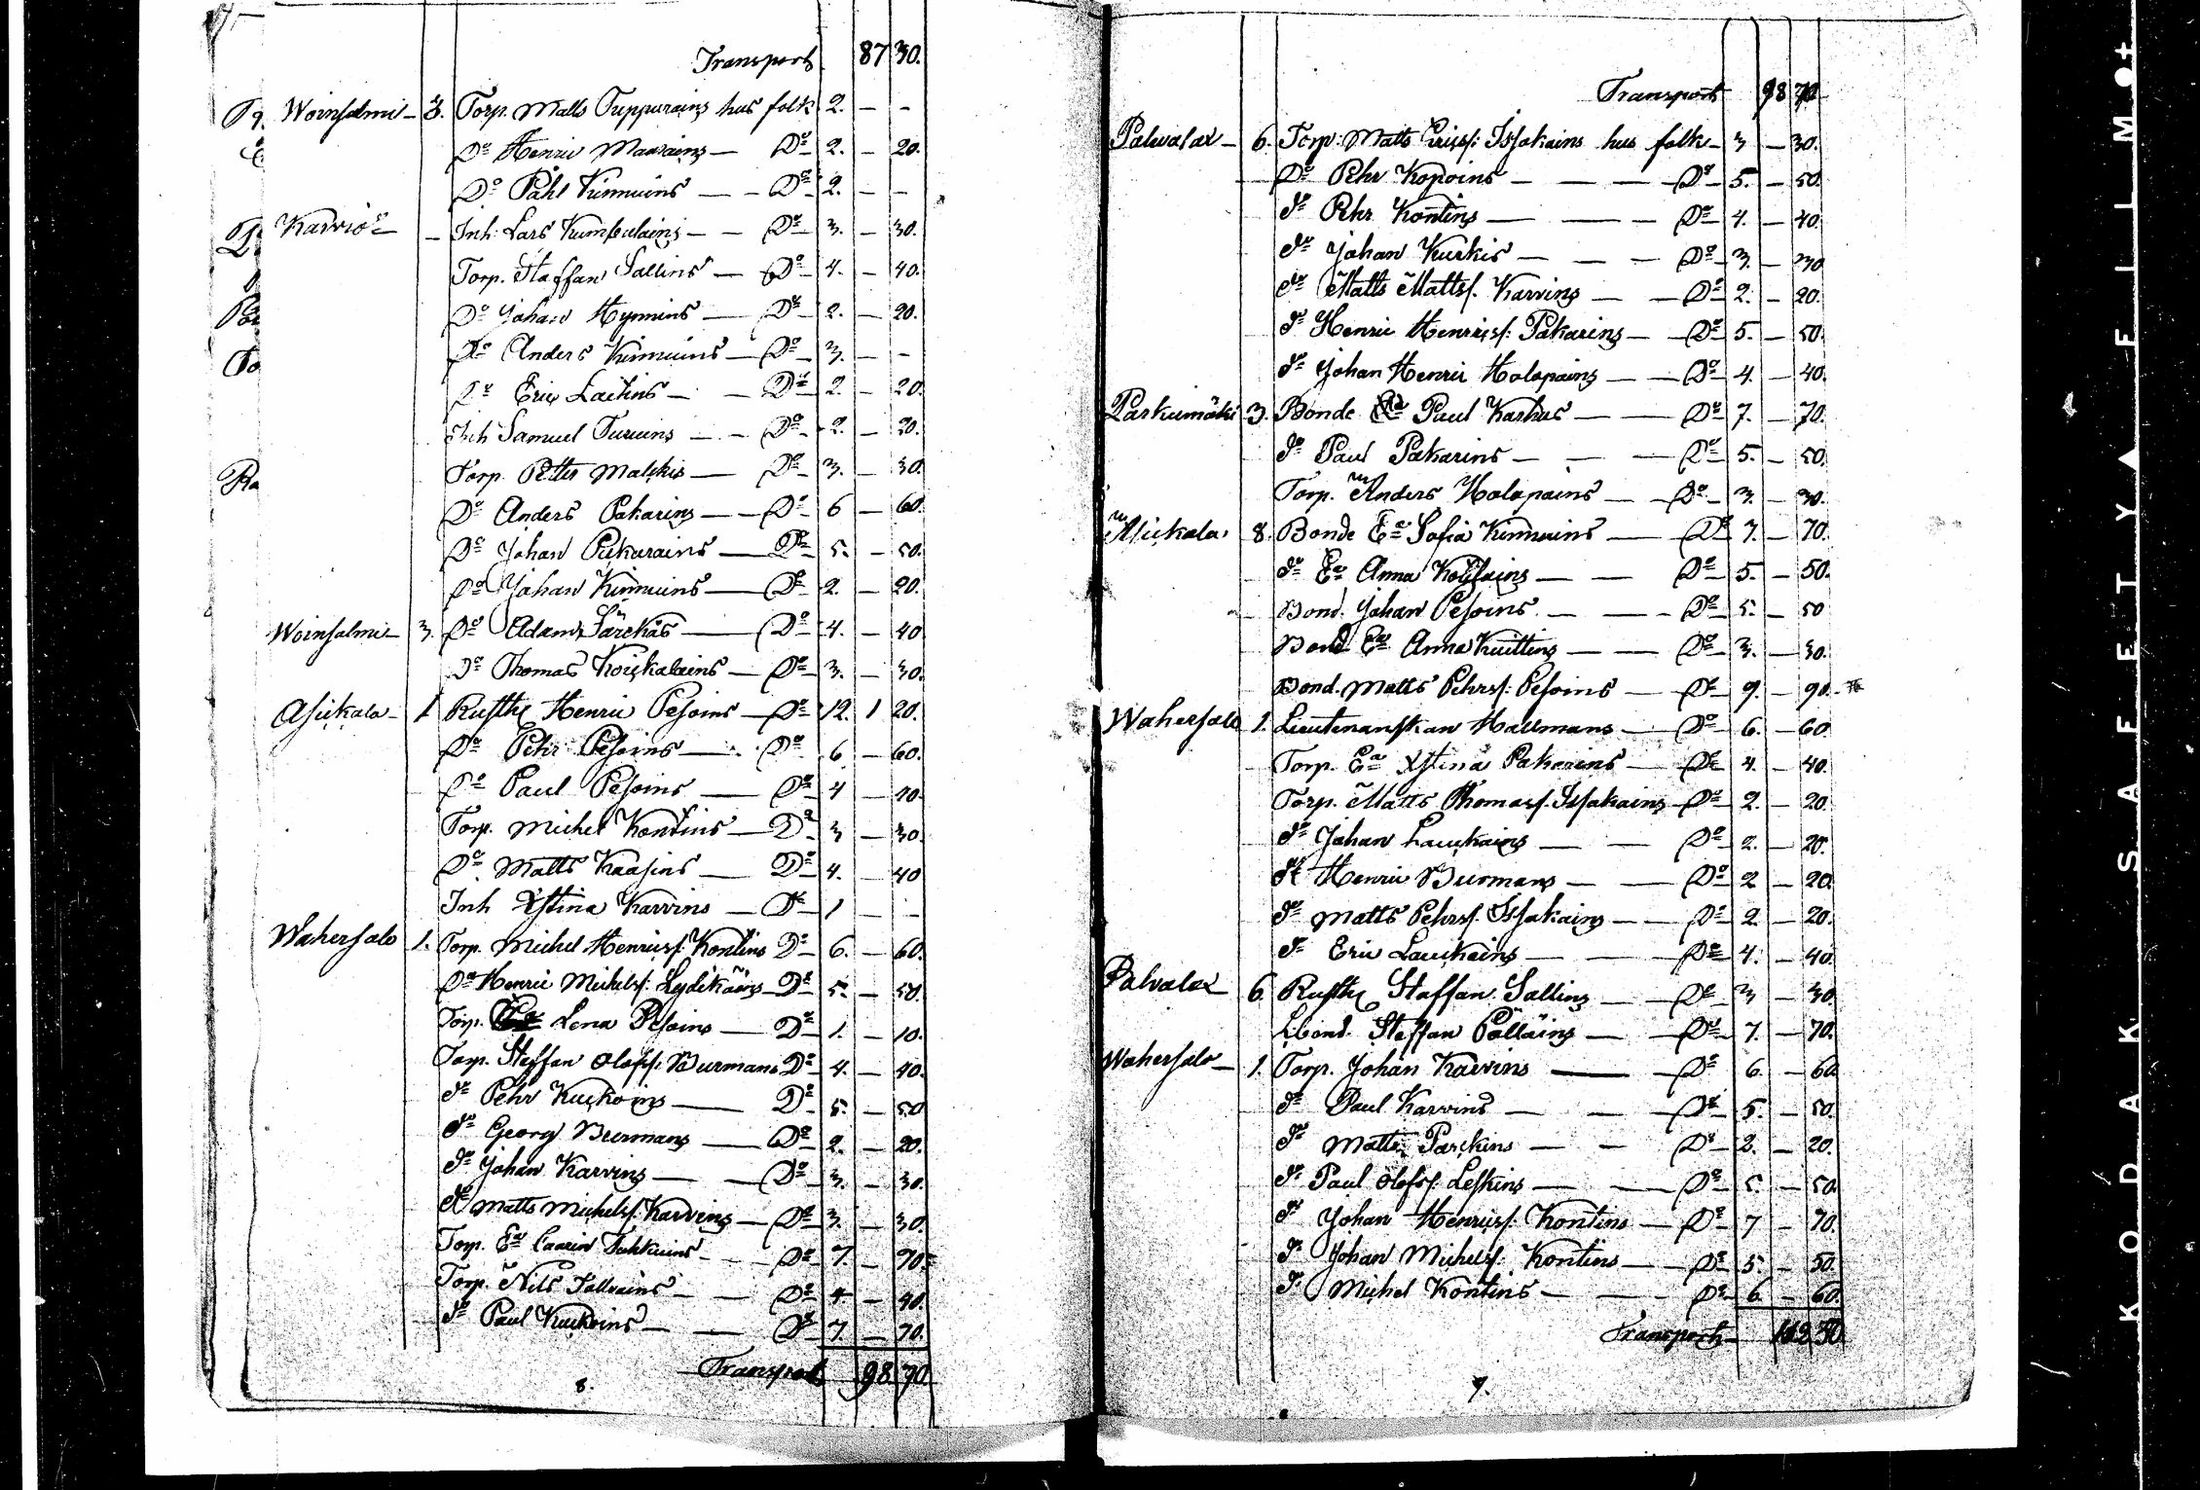 Transport 87 30.
Woinsalmi 3. Torp. Matts Tuppurains hus folk 2. — —
Do Henric Maarains — Do 2. — 20.
Do Påhl Kinnuins — Do 2. — —
Karvio — Inh. Lars Kumbulains — Do 3. — 30.
Torp. Staffan Sallins — Do 4. — 40.
Do Johan Hynnins — Do 2. — 20.
Do Anders Kinnuins — Do 3. — —
Do Eric Laitins — Do 2. — 20.
Inh Samuel Turuins — Do 2. — 20.
Torp. Petter Malskis — Do 3. — 30.
Do Anders Pakarins — Do 6 — 60.
Do Johan Puckarains — Do 5. — 50.
Do Johan Kinnuins — Do 2. — 20.
Woinsalmi 3. Do Adam Särckäs — Do 4. — 40
Do Thomas Koickalains — Do 3. — 30.
Asickala 1 Rusth Henric Pesoins — Do 12. 1 20.
Do Pehr Pesoins — Do 6 — 60.
Do Paul Pesoins — Do 4 — 40
Torp. Michel Kontins — Do 3 — 30.
Do Matts Kaasins — Do 4. — 40
Inh Xstina Karvins — Do 1 — —
Wahersalo 1. Torp. Michel Henricss. Kontins Do 6. — 60.
Do Henric Michelss. Lydikäins Do 5. — 50.
Torp. Lena Pesoins — Do 1. — 10.
Torp. Staffan Olofss. Burmans Do 4. — 40.
Do Pehr Kuckoins — Do 5. — 50
Do Georg Burmans — Do 2. — 20.
Do Johan Karvins — Do 3. — 30.
Do Matts Michelss. Karvins — Do 3. — 30.
Torp. Ea Caarin Tuhkuins — Do 7. — 70.
Torp. Nils Tallvains — Do 4. — 40.
Do Paul Kuckoins — Do 7. — 70.
Transport 98. 70.
8.
Transport 98 70
Palvalax 6. Torp. Matts Ericss. Issakains hus folk 3 — 30.
Do Pehr Kopoins — Do 5. — 50
Do Pehr Kontins — Do 4. — 40
Do Johan Kurkis — Do 3. — 30
Do Matts Mattss. Karvins — Do 2. — 20.
Do Henric Henricss. Pakarins — Do 5. — 50.
Do Johan Henric Holopains — Do 4. — 40.
Parkumäki 3. Bonde Paul Karhus — Do 7. — 70.
Do Paul Pakarins — Do 5. — 50.
Torp. Anders Holopains — Do 3. — 30.
Asickala 8. Bonde Ea Sofia Kinnuins — Do 7. — 70.
Do Ea Anna — Do 5. — 50.
Bond. Johan Pesoins — Do 5. — 50
Bond Ea Anna Kuittins — Do 3. — 30.
Bond. Matts Pehrss. Pesoins — Do 9. — 90.
Wahersalo 1. Lieutenanskan Hallmans — Do 6. — 60
Torp. Ea Xstina Pakarins — Do 4. — 40
Torp. Matts Thomass. Issakains Do 2. — 20
Do Johan Lauckains — Do 2. — 20.
Do Henric Burmans — Do 2 — 20.
Do Matts Pehrss. Issakains — Do 2 — 20.
Do Eric Lauckains — Do 4. — 40.
Palvalax 6. Rusth Staffan Sallins — Do 3 — 30.
Bond. Steffan Pölläins — Do 7. — 70.
Wahersalo 1. Torp. Johan Karvins — Do 6. — 60
Do Paul Karvins — Do 5. — 50.
Do Matts Parckins — Do 2. — 20.
Do Paul Olofss. Leskins — Do 5. — 50
Do Johan Henricss. Kontins — Do 7 — 70.
Do Johan Michelss. Kontins — Do 5. — 50.
Do Michel Kontins — Do 6. — 60.
Transport 112 50
9.
KODAK SAFETY ▲ FILM ●+